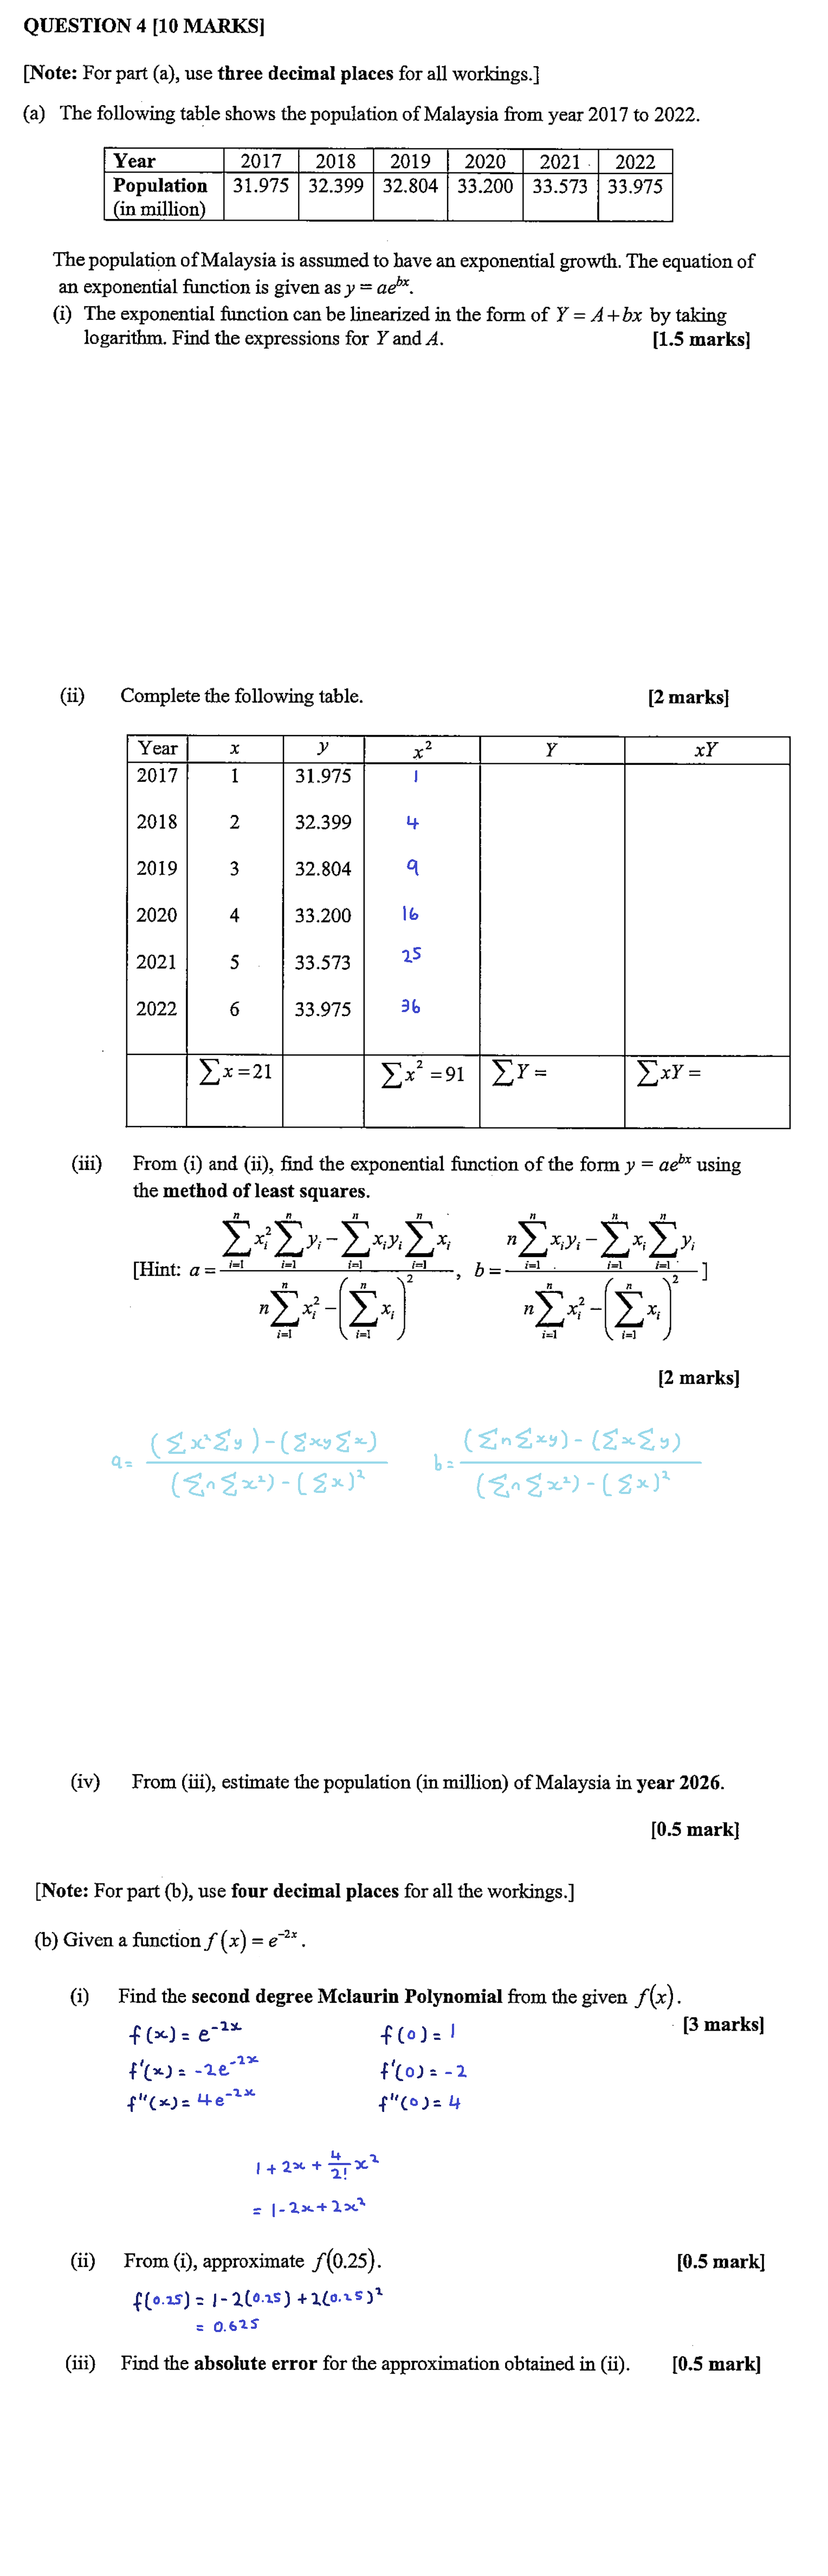 QUESTION 4 [10 MARKS]
[Note: For part (a), use three decimal places for all workings.]
(a) The following table shows the population of Malaysia from year 2017 to 2022.
Year 2017 2018 2019 2020 2021 2022
Population (in million) 31.975 32.399 32.804 33.200 33.573 33.975
The population of Malaysia is assumed to have an exponential growth. The equation of
an exponential function is given as y = ae^{bx}.
(i) The exponential function can be linearized in the form of Y = A + bx by taking
logarithm. Find the expressions for Y and A. [1.5 marks]
(ii) Complete the following table. [2 marks]
Year x y x² Y xY
2017 1 31.975 1
2018 2 32.399 4
2019 3 32.804 9
2020 4 33.200 16
2021 5 33.573 25
2022 6 33.975 36
∑x = 21 ∑x² = 91 ∑Y = ∑xY =
(iii) From (i) and (ii), find the exponential function of the form y = ae^{bx} using
the method of least squares.
[Hint: a = (∑_{i=1}^{n} x_i² ∑_{i=1}^{n} y_i − ∑_{i=1}^{n} x_i y_i ∑_{i=1}^{n} x_i) / (n∑_{i=1}^{n} x_i² − (∑_{i=1}^{n} x_i)²), b = (n∑_{i=1}^{n} x_i y_i − ∑_{i=1}^{n} x_i ∑_{i=1}^{n} y_i) / (n∑_{i=1}^{n} x_i² − (∑_{i=1}^{n} x_i)²) ]
[2 marks]
a = ((∑x²∑y) − (∑xy∑x)) / ((∑n∑x²) − (∑x)²) b = ((∑n∑xy) − (∑x∑y)) / ((∑n∑x²) − (∑x)²)
(iv) From (iii), estimate the population (in million) of Malaysia in year 2026.
[0.5 mark]
[Note: For part (b), use four decimal places for all the workings.]
(b) Given a function f(x) = e^{-2x}.
(i) Find the second degree Mclaurin Polynomial from the given f(x).
[3 marks]
f(x) = e^{-2x} f(0) = 1
f'(x) = -2e^{-2x} f'(0) = -2
f''(x) = 4e^{-2x} f''(0) = 4
1 + 2x + 4/2! x²
= 1 - 2x + 2x²
(ii) From (i), approximate f(0.25). [0.5 mark]
f(0.25) = 1 - 2(0.25) + 2(0.25)²
= 0.625
(iii) Find the absolute error for the approximation obtained in (ii). [0.5 mark]